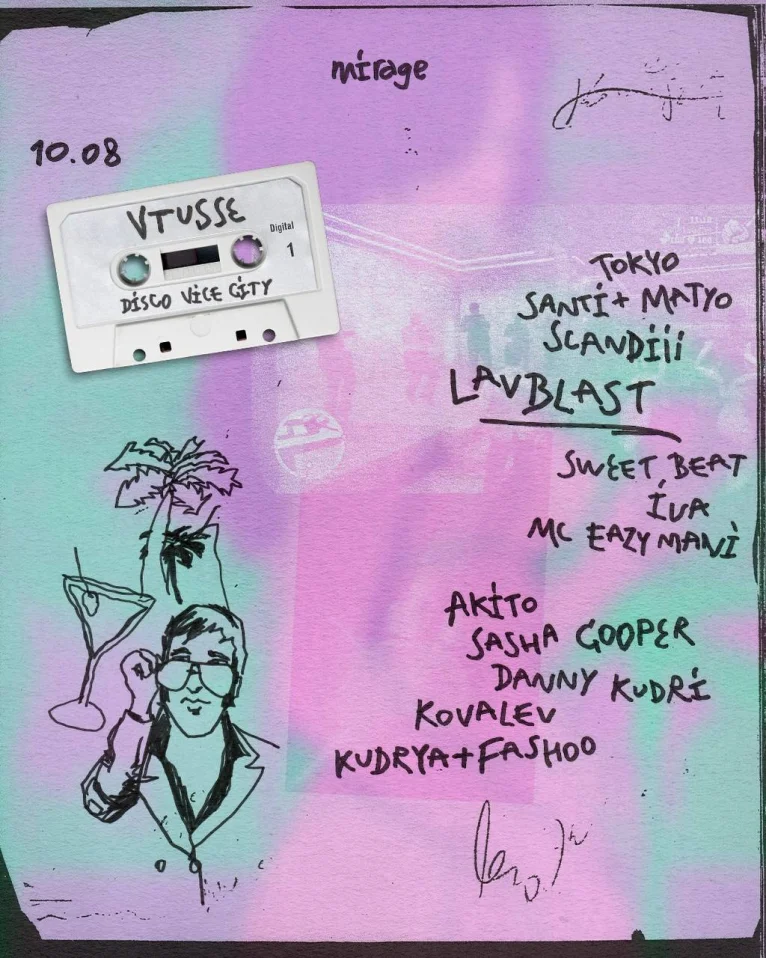 mirage
10.08
VTUSSE
Digital
1
DISCO VICE CITY
TOKYO
SANTI + MATYO
SCANDIII
LAVBLAST
SWEET BEAT
IVA
MC EAZY MANI
AKITO
SASHA COOPER
DANNY KUDRI
KOVALEV
KUDRYA + FASHOO